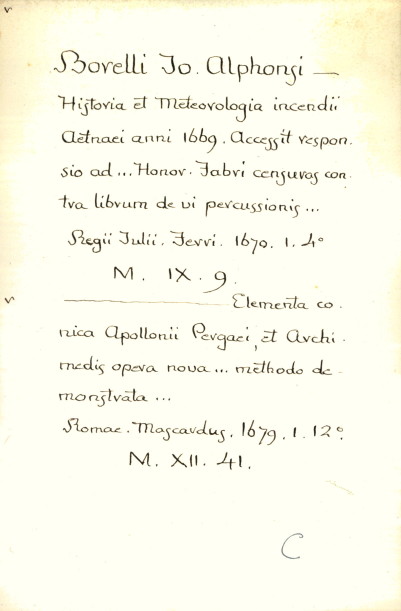 Borelli Io. Alphonsi —
Historia et Meteorologia incendii
Aetnaei anni 1669. Accessit respon.
sio ad... Honor. Fabri censuras con.
tra librum de vi percussionis...
Regii Iulii. Ferri. 1670. 1. 4°
M. IX. 9.
Elementa co.
nica Apollonii Pergaei, et Archi.
medis opera nova... methodo de.
monstrata...
Romae. Mascardus. 1679. 1. 12°.
M. XII. 41.
C